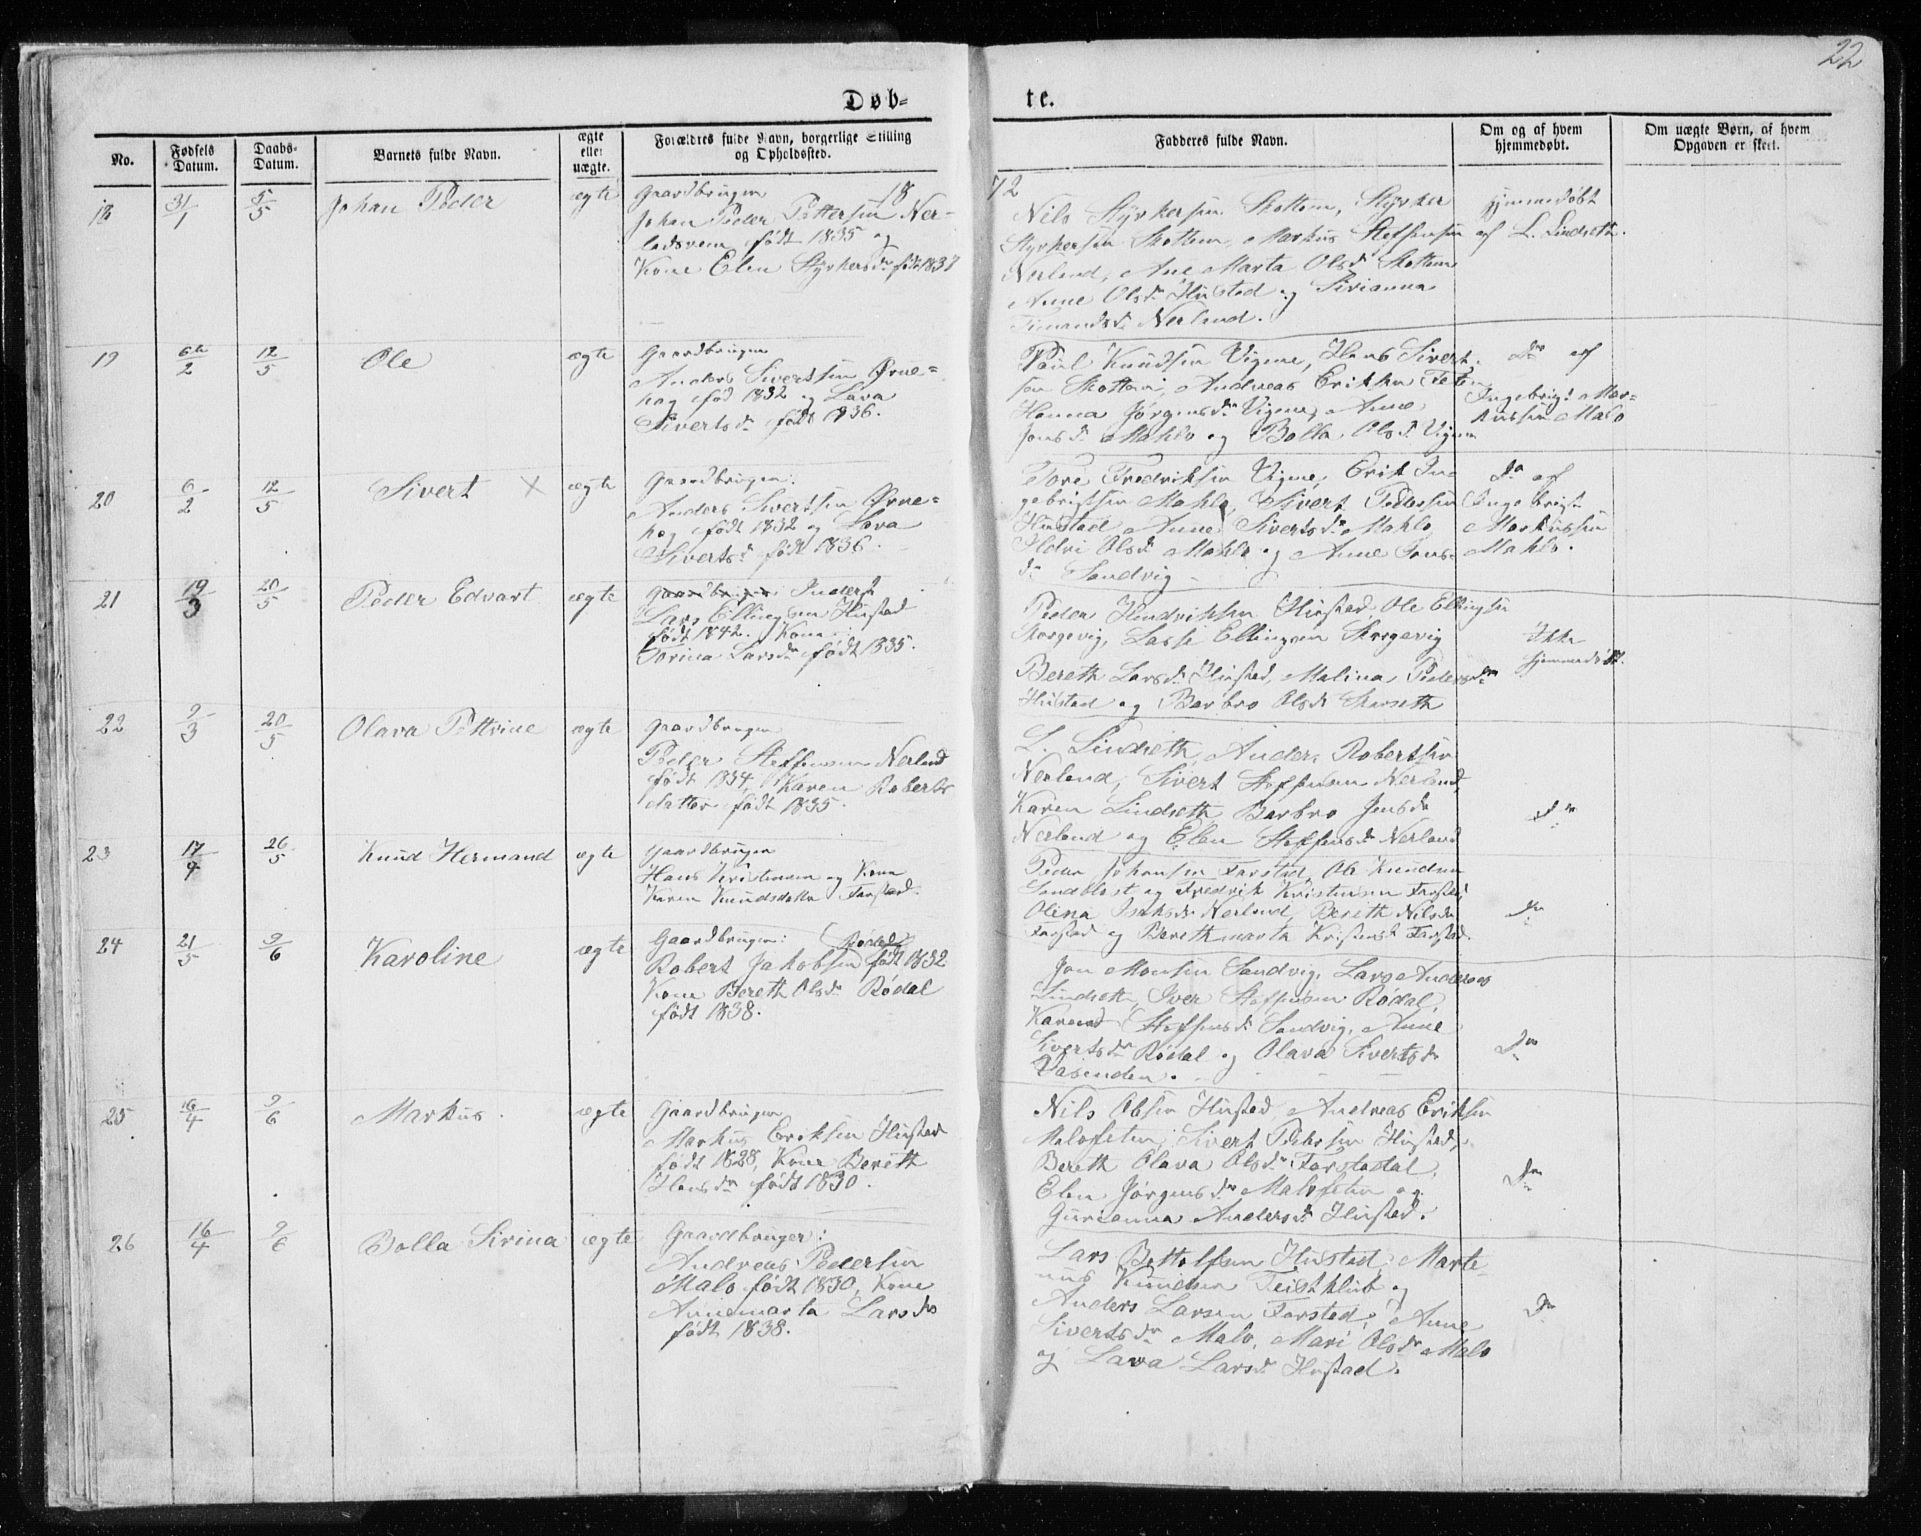 22
Døb=
te.
No.
Fødsels Datum.
Daabs-Datum.
Barnets fulde Navn.
ægte eller uægte.
Forældres fulde Navn, borgerlige Stilling og Opholdssted.
Fadderes fulde Navn.
Om og af hvem hjemmedøbt.
Om uægte Børn, af hvem Opgaven er skeet.
1872
18
31/1
5/5
Johan Peder
ægte
Gaardbruger
Johan Peder Pettersen Ner-
født 1835 og
Kone Elen Styrkersdr født 1837
Nils Styrkersen Skottem, Styrker
Styrkersen Skottem, Markus Steffensen
Nerland, Ane Marta Olsdr Skottem
Anne Olsdr Hustad og Sirianna
Nerland.
hjemmedøbt
af L. Lindseth.
19
6te/2
12/5
Ole
ægte
Gaardbruger
Anders Sivertsen Ørne=
hog fød 1832 og Lava
Sivertsdr født 1836.
Paul Knudsen Vigene, Hans Sivert
sen Skottem, Andreas Eriksen
Hanna Jørgensdr Vigene, Anne
Jonsdr Mahlo og Bolla Olsdr Vigen
Do af
Ingebrigt Mar-
kussen Malo
20
6/2
12/5
Sivert ×
ægte
Gaardbruger:
Anders Sivertsen Ørne=
hog født 1832 og Lava
Sivertsdr født 1836.
Tore Fredriksen Vigene, Erik In
gebrigtsen Mahlo, Sivert Pedersen
Hustad, Anne Sivertsdr Mahlo,
Ildri Olsdr Mahlo og Anne Jons=
dr Sandvig
Do af
Ingebrigt
Markussen
Mahlo.
21
19/3
20/5
Peder Edvart
ægte
Gaardbruger Inderst
Lars Ellingsen Hustad
født 1842. Kone
Torina Larsdr født 1835.
Peder Hendriksen Hustad, Ole Ellingsen
Skorgevig, Lasse Ellingsen Skorgevig
Bereth Larsdr Hustad, Malina Pedersdr
Hustad og Barbro Olsdr
Ikke
hjemmedøbt.
22
9/3
20/5
Olava Pettrine
ægte
Gaardbruger
Peder Steffensen Nerland
født 1834, Karen Roberts
datter født 1835.
L. Lindseth, Anders Robertsen
Nerland, Sivert Steffensen Nerland,
Karen Lindseth, Barbro Jensdr
Nerland og Elen Steffensdr Nerland
Do
23
17/4
26/5
Knud Hermand
ægte
Gaardbruger
Hans Kristensen og Kone
Karen Knudsdatter Farstad.
Peder Johansen Farstad, Ole Knudsen
Sandblost og Fredrik Kristensen Farstad,
Olina Isaksdr Nerland, Bereth Nilsdr
Farstad og Berethmarta Kristensdr Farstad.
Do
24
21/5
9/6
Karoline
ægte
Gaardbruger:
Rødal
Robert Jakobsen født 1832
Kone Bereth Olsdr Rødal
født 1838.
Jon Monsen Sandvig, Lars Anderson
Lindseth, Iver Steffensen Rødal,
Steffensdr Sandvig, Anne
Sivertsdr Rødal og Olava Sivertsdr
Vasenden.
Do
25
16/4
9/6
Markus.
ægte
Gaardbruger
Markus Eriksen Hustad
født 1828, Kone Bereth
Hansdr født 1830.
Nils Olsen Hustad, Andreas Eriksen
Malosetter, Sivert Pedersen Hustad,
Bereth Olava Olsdr Farstadal,
Elen Jørgensdr Maloseter og
Gurianna Andersdr Hustad.
Do
26
16/4
9/6
Bolla Sirina
ægte
Gaardbruger:
Andreas Pedersen
Malo født 1830, Kone
Annemarta Larsdr
født 1838.
Lars Bottolfsen Hustad, Marte-
nus Knudsen Teistklub og
Anders Larsen Farstad, Anne
Sivertsdr Malo, Mari Olsdr Malo
og Lava Larsdr Hustad.
Do